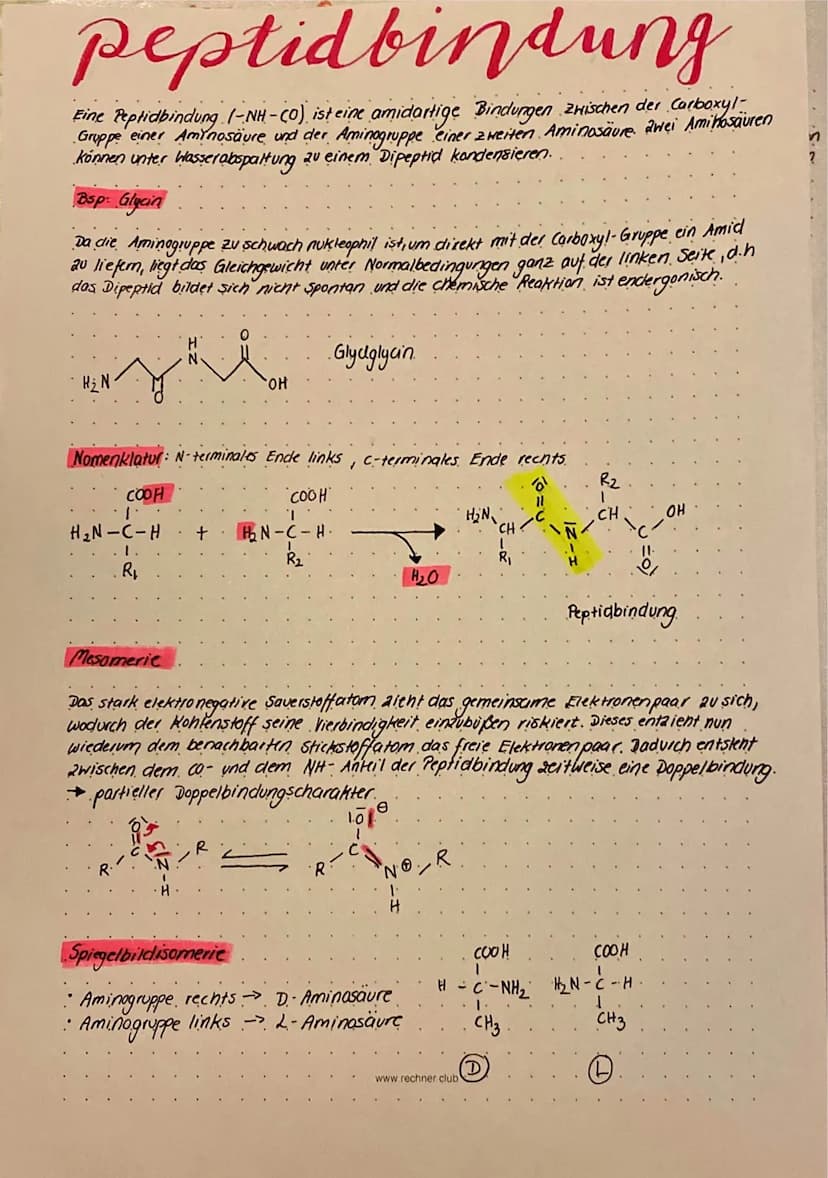 peptidbindung
Eine Peptidbindung (-NH-CO) ist eine amidartige Bindungen zwischen der Carboxyl-
Gruppe einer Aminosäure und der Aminogruppe einer zweiten Aminosäure. Zwei Aminosäuren
können unter Wasserabspaltung zu einem Dipeptid kondensieren.
Bsp: Glycin
Da die Aminogruppe zu schwach nukleophil ist, um direkt mit der Carboxyl-Gruppe ein Amid
zu liefern, liegt das Gleichgewicht unter Normalbedingungen ganz auf der linken Seite, d.h
das Dipeptid bildet sich nicht spontan und die chemische Reaktion ist endergonisch.
H
N
O
H₂N
O
OH
Glyclglycin
Nomenklatur: N-terminales Ende links, C-terminales Ende rechts
COOH
H₂N-C-H
R₁
+
COOH
H₂N-C-H
R₂
H₂O
H₂N
CH
R₁
O
C
N
H
R₂
CH
C
OH
O
Peptidbindung
Mesomerie
Das stark elektronegative Sauerstoffatom zieht das gemeinsame Elektronenpaar zu sich,
wodurch der Kohlenstoff seine Vierbindigkeit einzubüßen riskiert. Dieses entzieht nun
wiederum dem benachbarten Stickstoffatom das freie Elektronenpaar. Dadurch entsteht
zwischen dem CO- und dem NH-Anteil der Peptidbindung zeitweise eine Doppelbindung.
→ partieller Doppelbindungscharakter
O
R C N R
H
O ⊖
R C N ⊕ R
H
Spiegelbildisomerie
• Aminogruppe rechts → D-Aminosäure
• Aminogruppe links → L-Aminosäure
COOH
H-C-NH₂
CH₃
D
COOH
H₂N-C-H
CH₃
L
www.rechner.club